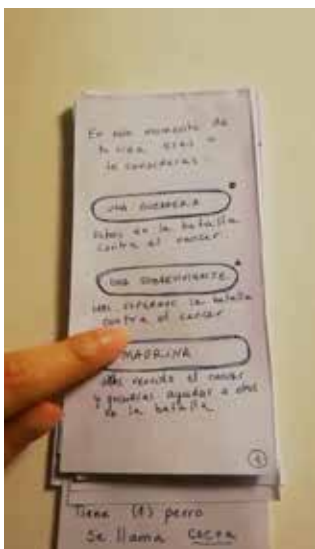 En este momento de
tu vida eres o
te consideras:
UNA GUERRERA
Estas en la batalla
contra el cancer
UNA SOBREVIVIENTE
Has superado la batalla
contra el cancer
MADRINA
Has vencido el cancer
y quieres ayudar a otras
en la batalla
1
Tiene (1) perro
Se llama